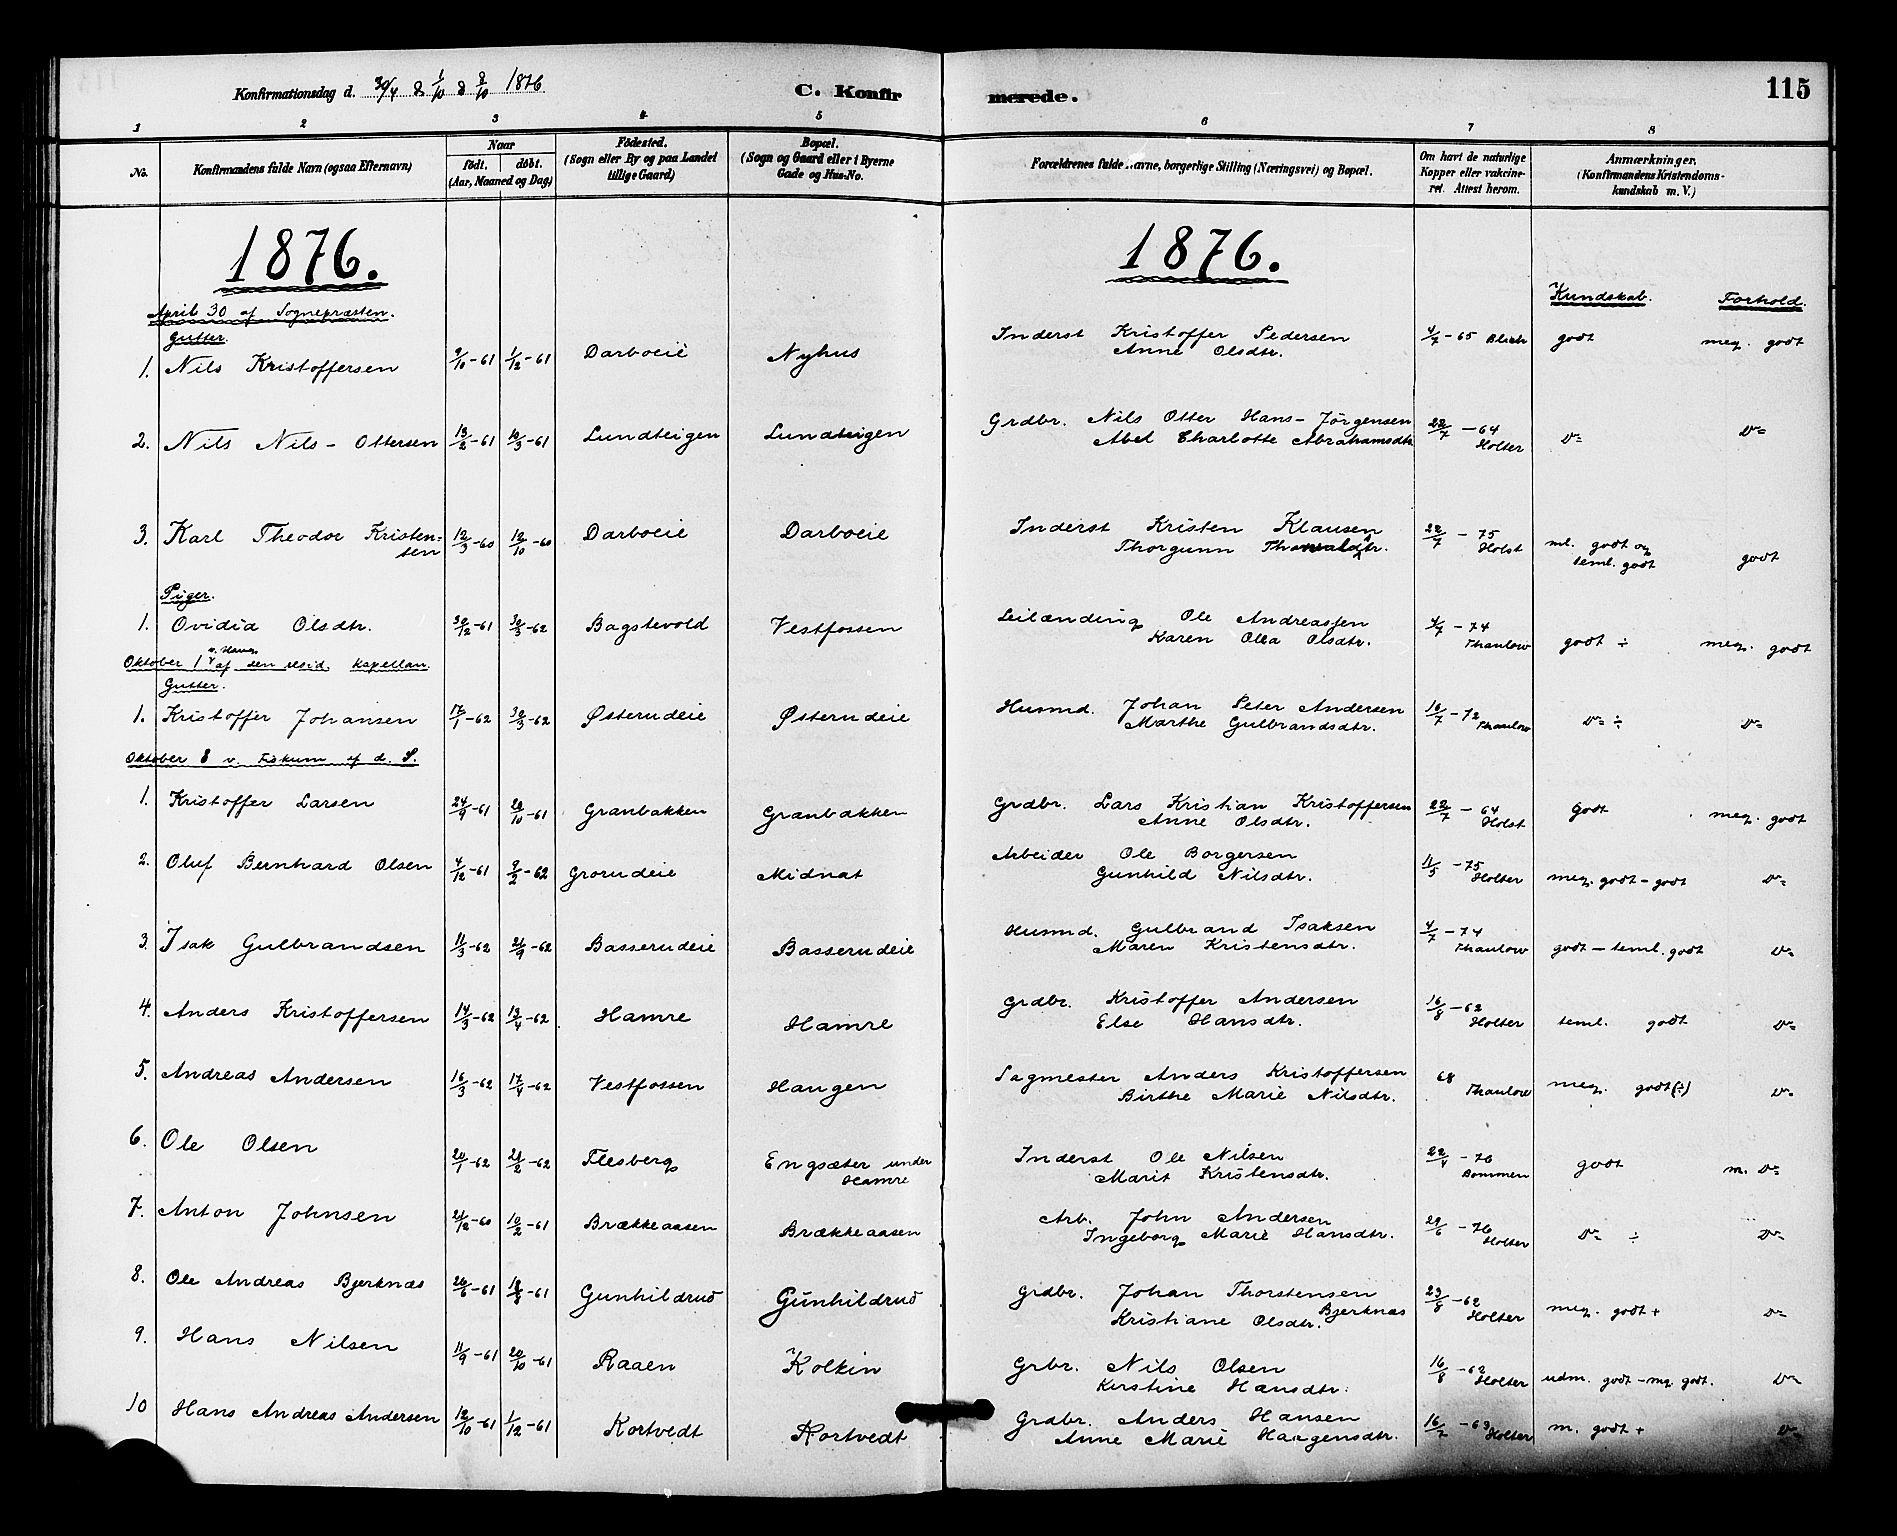 Konfirmationsdag d. 30/4 & 1/10 & 8/10 1876
C. Konfirmerede.
115
1 2 3 4 5 6 7 8
No.
Konfirmandens fulde Navn (ogsaa Efternavn)
Naar
født. døbt.
(Aar, Maaned og Dag)
Fødested.
(Sogn eller By og paa Landet
tillige Gaard)
Bopæl.
(Sogn og Gaard eller i Byerne
Gade og Hus-No.
Forældrenes fulde Navne, borgerlige Stilling (Næringsvei) og Bopæl.
Om havt de naturlige
Kopper eller vakcine-
ret. Attest herom.
Anmærkninger.
(Konfirmandens Kristendoms-
kundskab m. V.)
1876. 1876.
Kundskab. Forhold.
April 30 af Sognepræsten.
Gutter.
1. Nils Kristoffersen 9/10-61 1/12-61 Darboeie Nyhus Inderst Kristoffer Pedersen 4/7-65 Blich godt meg. godt
Anne Olsdtr.
2. Nils Nils-Ottersen 13/2-61 10/3-61 Lundteigen Lundteigen Grdbr. Nils Otter Hans-Jörgensen 22/7-64 Do Do
Abel Charlotte Abrahamsdtr. Holter
3. Karl Theodor Kristen- 12/3-60 12/10-60 Darboeie Darboeie Inderst Kristen Klausen 22/7-75 ml. godt og
sen Thorgunn Thorvaldsdtr. Holst teml. godt godt
Piger.
1. Ovidia Olsdtr. 30/12-61 30/3-62 Bagstevold Vestfossen Leilænding Ole Andreassen 4/7-74 godt ÷ meg. godt
Karen Olea Olsdtr. Thaulow
Oktober 1 v. Haug af den resid. kapellan.
Gutter.
1. Kristoffer Johansen 17/1-62 30/3-62 Østerudeie Østerudeie Husmd. Johan Peter Andersen 16/7-72 Do ÷ Do
Marthe Gulbrandsdtr. Thaulow
Oktober 8 v. Fiskum af d. S.
1. Kristoffer Larsen 24/9-61 20/10-61 Granbakken Granbakken Grdbr. Lars Kristian Kristoffersen 22/7-64 godt meg. godt
Anne Olsdtr. Holst
2. Oluf Bernhard Olsen 4/12-61 9/2-62 Grorudeie Midnat Arbeider Ole Borgersen 11/5-75 meg. godt-godt Do
Gunhild Nilsdtr. Holter
3. Isak Gulbrandsen 11/3-62 21/9-62 Basserudeie Basserudeie Husmd. Gulbrand Isaksen 4/7-74 godt-teml. godt Do
Maren Kristensdtr. Thaulow
4. Anders Kristoffersen 14/3-62 13/4-62 Hamre Hamre Grdbr. Kristoffer Andersen 16/8-62 teml. godt Do
Else Hansdtr. Holter
5. Andreas Andersen 16/3-62 17/4-62 Vestfossen Haugen Sagmester Anders Kristoffersen 68 meg. godt (÷) Do
Birthe Marie Nilsdtr. Thaulow
6. Ole Olsen 20/1-62 28/2-62 Flesberg Engsæter under Inderst Ole Nilsen 22/4-76 godt m. Do
Hamre Marit Kristensdtr. Bommen
7. Anton Johnsen 21/12-60 10/2-61 Brækkeaasen Brækkeaasen Arb. John Andersen 29/6-76 Do ÷ Do
Ingeborg Marie Hansdtr. Holter
8. Ole Andreas Bjerknæs 26/6-61 18/8-61 Gunhildrud Gunhildrud Grdbr. Johan Thorstensen 23/8-62 meg. godt + Do
Kristiane Olsdtr. Bjerknæs Holter
9. Hans Nilsen 11/9-61 20/10-61 Raaen Kolkin Grbr. Nils Olsen 16/8-62 udm. godt-mg. godt. Do
Kirstine Hansdtr. Holter
10 Hans Andreas Andersen 12/10-61 1/12-61 Kortvedt Kortvedt Grdbr. Anders Hansen 16/7-63 m. godt + Do
Anne Marie Haagensdtr. Holter